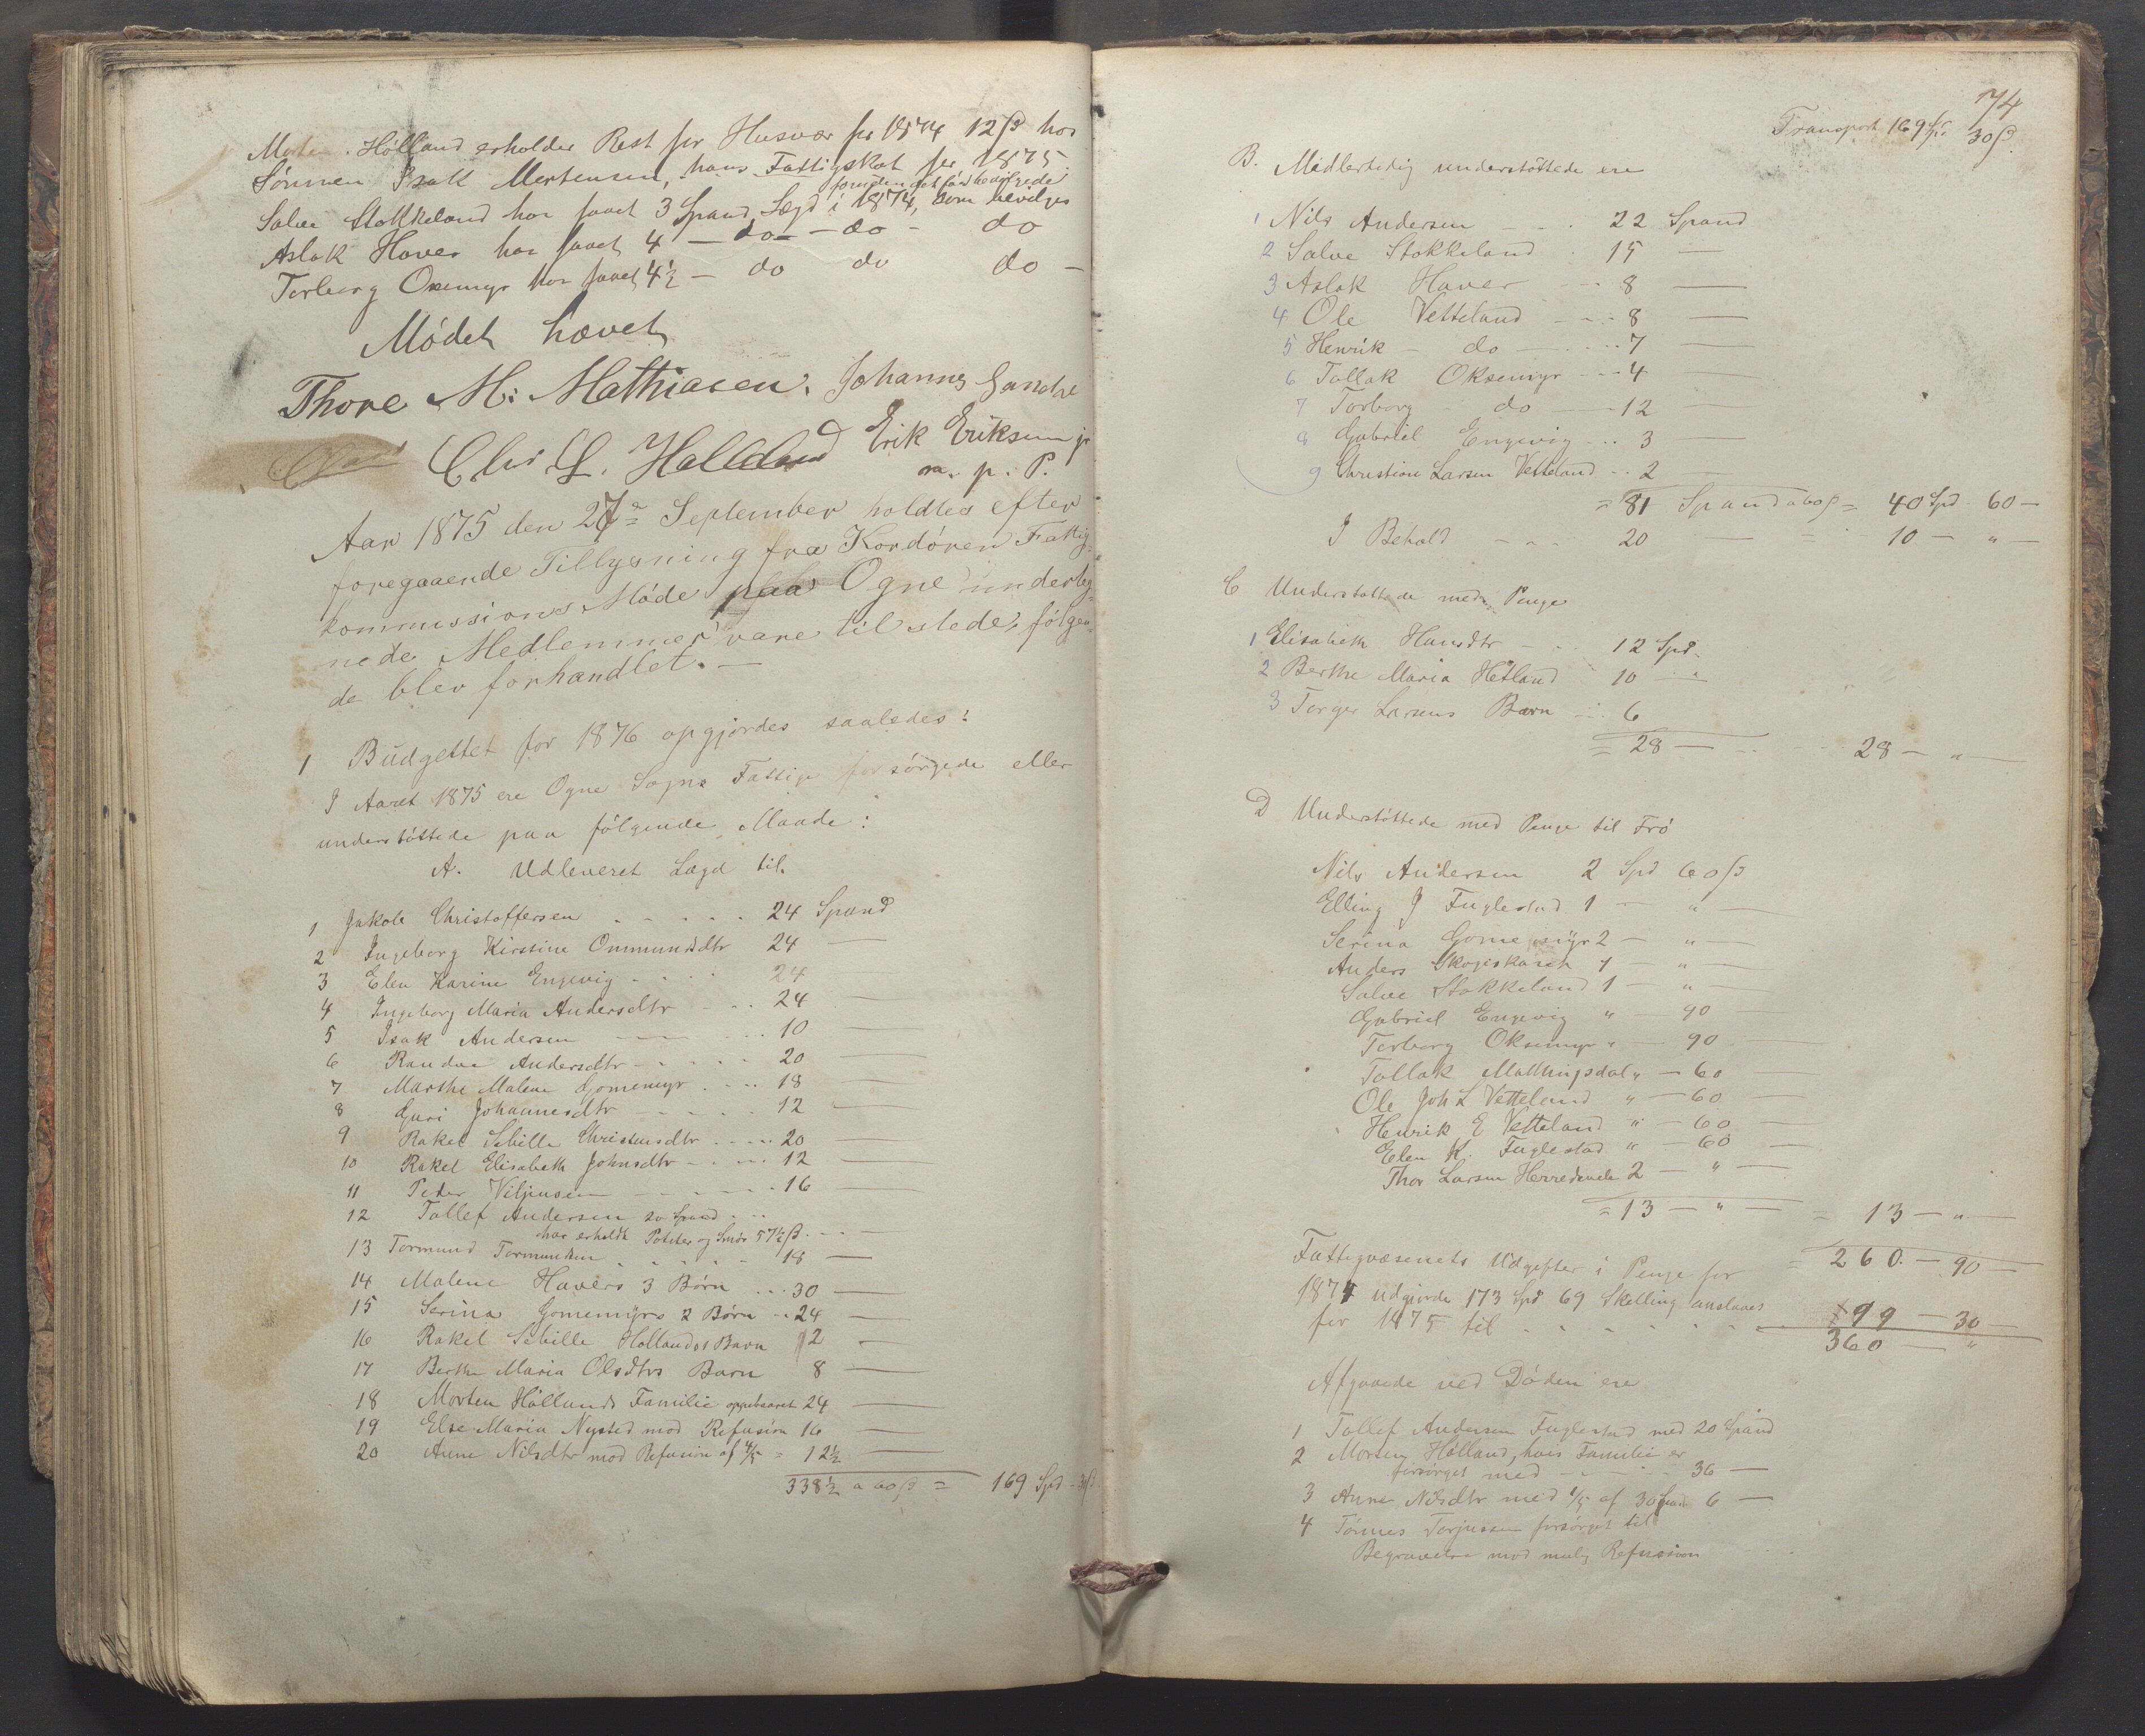 Morten Hølland erholder Rest for Husvær for 1874 12 ß hos
Sønnen Isak Mortensen, hans Fattigskat for 1875
foruden det før bevilgede
Salve Stokkeland har faaet 3 Spand Lægd i 1874, som bevilges
Aslak Haver har faaet 4 — do — do - do
Torborg Oxemyr har faaet 4½ — do do do —
Mødet hævet
Thore M: Mathiasen. Johannes Gandal
Chr L. Halland Erik Eriksen jr
m. p. P.
Aar 1875 den 27de September holdtes efter
foregaaende Tillysning fra Kordøren Fattig-
kommissions Møde paa Ogne underteg-
nede Medlemmer vare tilstede, følgen-
de blev forhandlet. —
1 Budgettet for 1876 opgjordes saaledes:
I Aaret 1875 ere Ogne Sogns Fattige forsørgede eller
understøttede paa følgende Maade:
A. Udleveret Lægd til.
1 Jakob Christoffersen - - - - 24 Spand
2 Ingeborg Kirstine Ommundsdtr 24 —
3 Elen Karine Engevig - - - 24
4 Ingeborg Maria Andersdtr - - - 24 —
5 Isak Andersen - - - 10 —
6 Randve Andersdtr - - - - 20 —
7 Marthe Malene Gomemyr - - - 18 —
8 Guri Johannesdtr - - - - 12 —
9 Rakel Sibille Christensdtr - - - 20
10 Rakel Elisabeth Johnsdtr - - - 12 —
11 Peder Viljensen - - - - 16 —
12 Tollef Andersen 20 Spand - - -
har erholdt Poteter og Smør 57½ ß - - —
13 Tormund Tormundsen - - - - 18 —
14 Malene Havers 3 Børn - - - 30 —
15 Serina Gomemyrs 2 Børn - - 24 —
16 Rakel Sibille Hollands Barn 12 —
17 Berthe Maria Olsdtrs Barn 8 —
18 Morten Høllands Familie oppebaaret 24 —
19 Else Maria Nysted mod Refusion 16 —
20 Anne Nilsdtr mod Refusion af 4/5 = 12½ —
338½ a 60 ß = 169 Spd - 30 ß
74
Transport 169 Spd 30 ß
B. Midlertidig understøttede ere
1 Nils Andersen - - - 22 Spand
2 Salve Stokkeland - 15 —
3 Aslak Haver - - 8 —
4 Ole Vetteland - - - 8 —
5 Henrik - do - - - 7 —
6 Tollak Oksemyr - - - 4 —
7 Torborg - do - - 12 —
8 Gabriel Engevig - - - 3 —
9 Christian Larsen Vetteland - - 2 —
= 81 Spand a 60 ß = 40 Spd - 60 —
I Behold - - - 20 — = 10 — " —
C Understøttede med Penge
1 Elisabeth Hansdtr - - - 12 Spd.
2 Berthe Maria Hetland 10 - "
3 Torger Larsens Børn - - 6
= 28 — - - - 28 — " —
D Understøttede med Penge til Frø
Nils Andersen 2 Spd 60 ß
Elling J Fuglestad 1 — " —
Serina Gomemyr 2 — " —
Anders 1 — " —
Salve Stokkeland 1 — " —
Gabriel Engevig " — 90 —
Torborg Oksemyr " — 90 —
Tollak Matningsdal " — 60 —
Ole Joh L Vetteland " — 60 —
Henrik E Vetteland " — 60 —
Elen K. Fuglestad " — 60 —
Thor Larsen 2 — " —
= 13 — " — = 13 — " —
Fattigvæsenets Udgifter i Penge for = 260. — 90 —
1874 udgjorde 173 Spd 69 Skelling, anslaaes
for 1875 til - - - - - - - 99 — 30 —
360 — "
Afgaaede ved Døden ere
1 Tollef Andersen Fuglestad med 20 Spand
2 Morten Hølland, hvis Familie er
forsørget med - - - - 36 —
3 Anne Nilsdtr med 1/5 af 30 Spand 6 —
4 Tønnes Torjussen forsørget til
Begravelse mod mulig Refusion